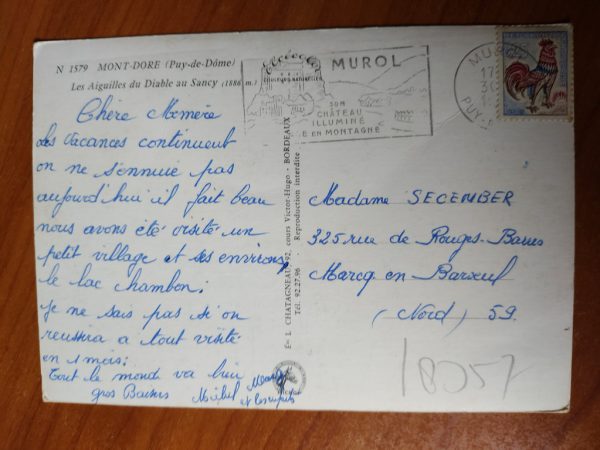 N 1579 MONT-DORE (Puy-de-Dôme)
Les Aiguilles du Diable au Sancy (1886 m.)
Chère Mémère
Les Vacances continuent
on ne s'ennuie pas
aujourd'hui il fait beau
nous avons été visité un
petit village et ses environs
le lac chambon.
Je ne sais pas si on
reussira a tout visité
en 1 mois.
Tout le monde va bien
gros Baisers Michel
et les enfants
Éts L. CHATAGNEAU, 92, cours Victor-Hugo - BORDEAUX
Tél. 92.27.96 - Reproduction interdite
MUROL
SON
CHÂTEAU
ILLUMINÉ
EN MONTAGNE
MUROL
PUY
Madame SECEMBER
325 rue de Rouges-Barres
Marcq en Baroeul
(Nord) 59.
18057